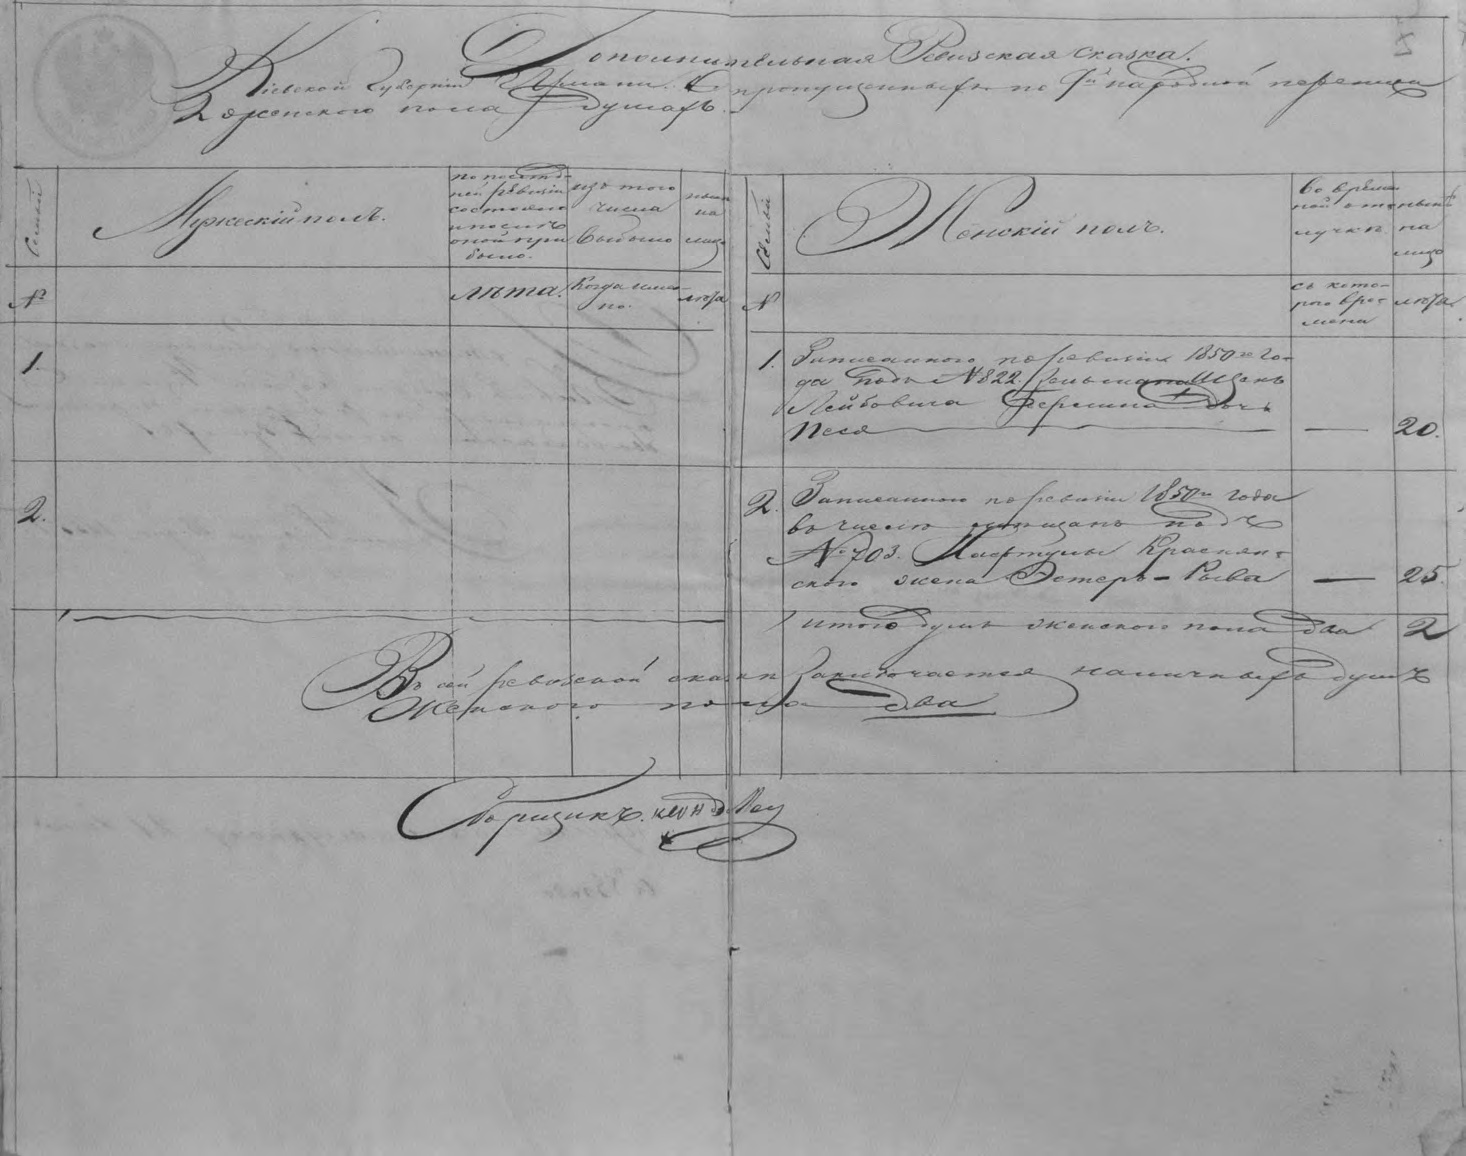 Дополнительная Ревизская сказка.
Кіевской Губерніи Г. Умани. О пропущенныхъ по 9й народной переписи
2 женского пола душахъ.
Семьи
Мужескій полъ.
по послед-
ней ревизіи
состояло
и после
оной при
было.
изъ того
числа
выбыло
ныне
на
лицо
Семьи
Женскій полъ.
во време-
ной отлучки
ныне
на
лицо
№
лета.
Когда имен-
но.
лета
№
съ кото-
рого вре-
мени
лета
1.
1. Записанного по ревизіи 1850го го-
да подъ № 822
Лейбовича дочь
Песя — 20.
2.
2. Записанного по ревизіи 1850го года
въ число подъ
№ 703. Краснян-
ского жена Эстеръ-Рыва — 25.
Итого душъ женского пола два 2
Въ сей ревизской сказки заключается наличныхъ душъ
Женского пола два
Сборщикъ.